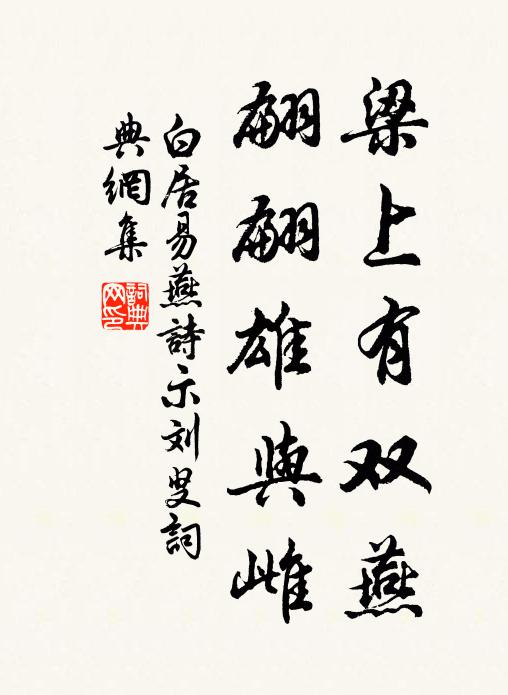 梁上有双燕
翩翩雄與雌
白居易燕詩示刘叟詞
典網集
詞典网印